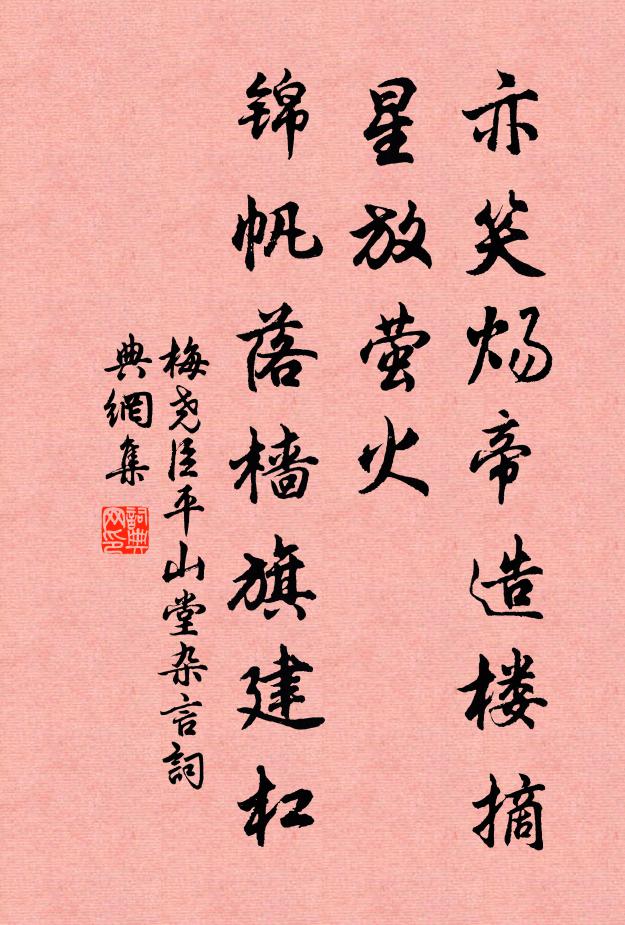 亦笑炀帝造楼摘
星放萤火
锦帆落樯旗建杠
梅尧臣平山堂杂言詞
典網集
詞典网印